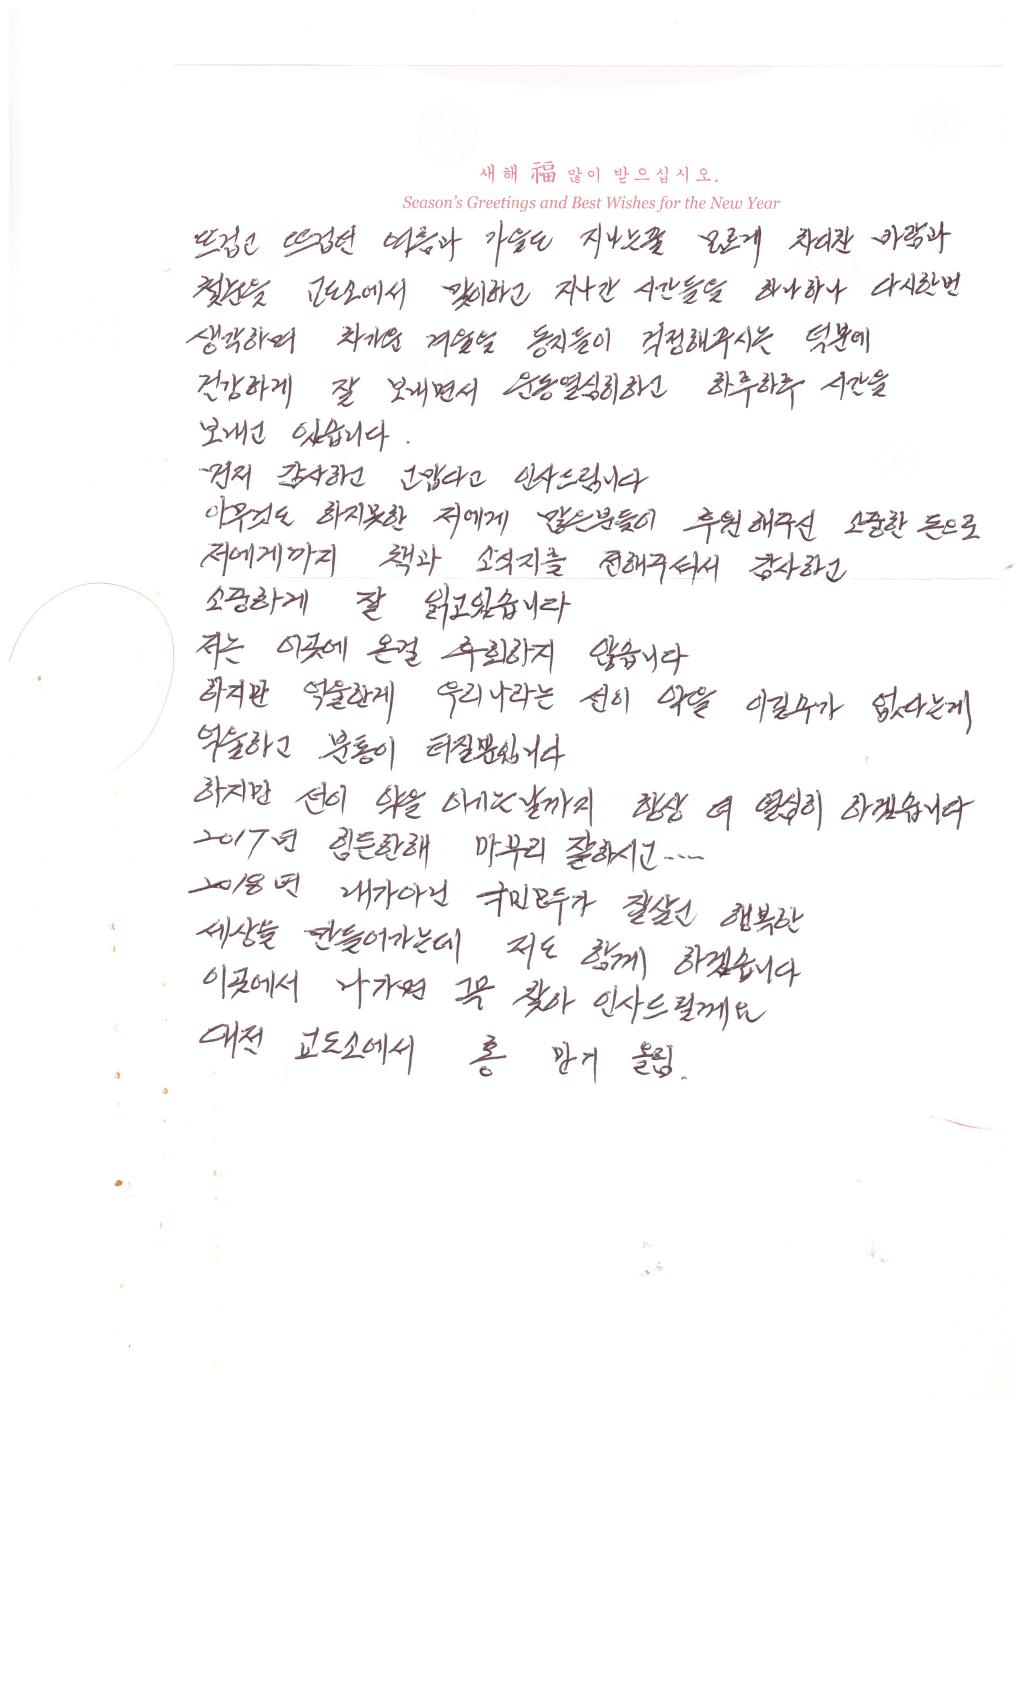 새해 福 많이 받으십시오.
Season's Greetings and Best Wishes for the New Year
뜨겁고 뜨겁던 여름과 가을도 지나는줄 모르게 차디찬 바람과
첫눈을 교도소에서 맞이하고 지나간 시간들을 하나하나 다시한번
생각하며 차가운 겨울을 동지들이 걱정해주시는 덕분에
건강하게 잘 보내면서 운동열심히하고 하루하루 시간을
보내고 있습니다.
먼저 감사하고 고맙다고 인사드립니다
아무것도 하지못한 저에게 많은분들이 후원해주신 소중한 돈으로
저에게까지 책과 소식지를 전해주셔서 감사하고
소중하게 잘 읽고있습니다
저는 이곳에 온걸 후회하지 않습니다
하지만 억울한게 우리나라는 선이 악을 이길수가 없다는게
억울하고 분통이 터질뿐입니다
하지만 선이 악을 이기는날까지 항상 더 열심히 하겠습니다
2017년 힘든한해 마무리 잘하시고----
2018년 내가아닌 국민모두가 잘살고 행복한
세상을 만들어가는데 저도 함께 하겠습니다
이곳에서 나가면 꼭 찾아 인사드릴께요
대전 교도소에서 홍 만기 올림.